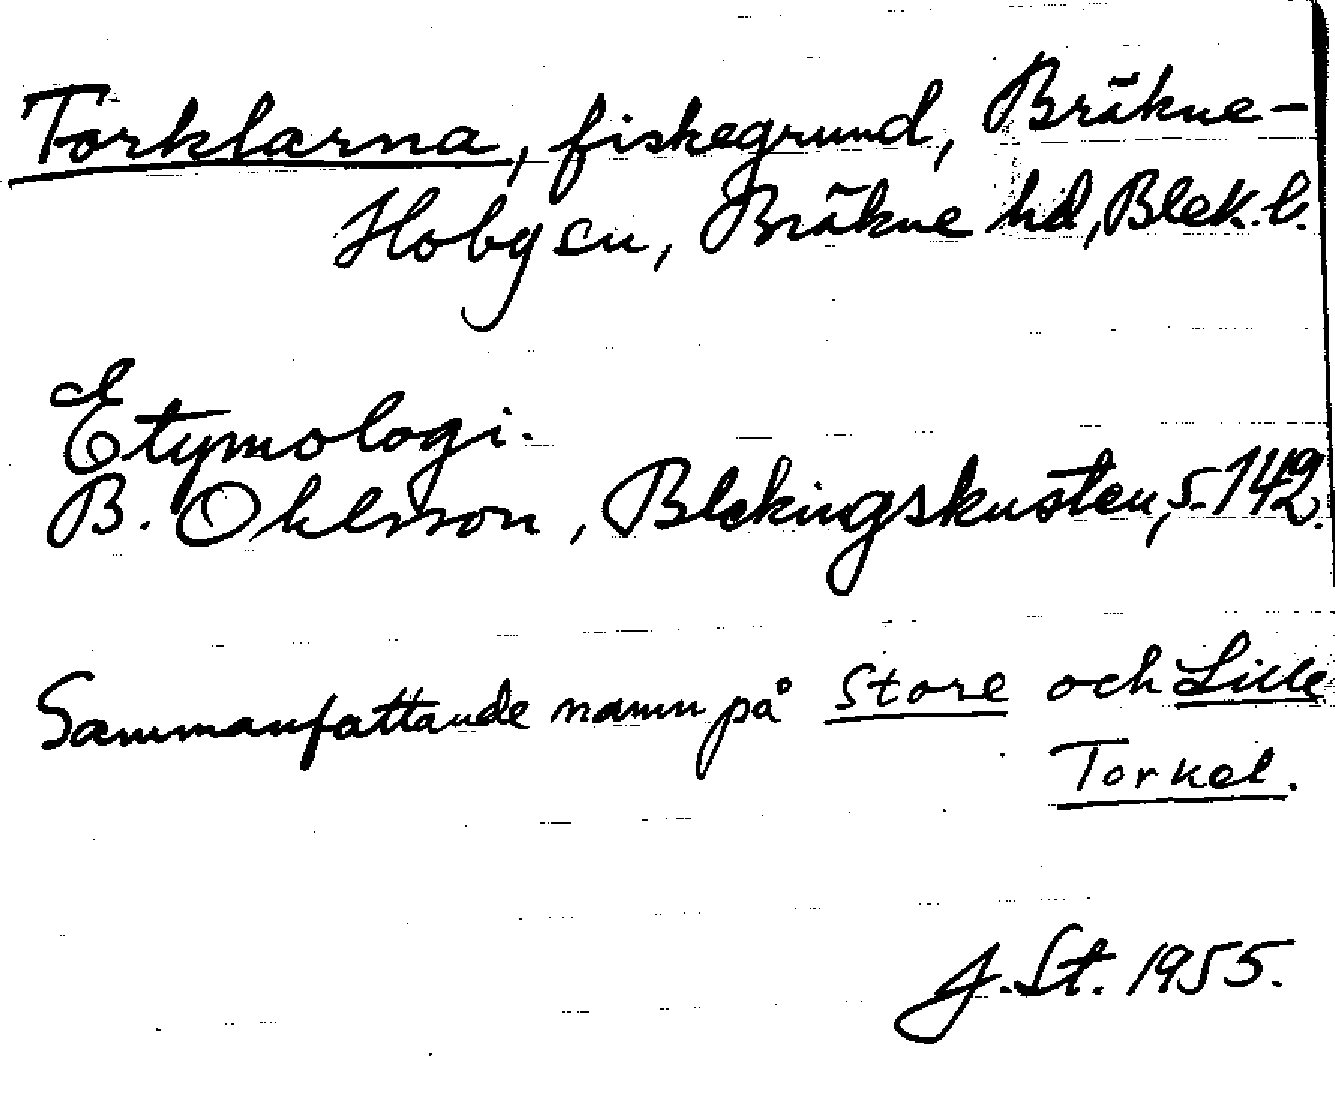 Torklarna, fiskegrund, Bräkne-
Hoby sn, Bräkne hd, Blek. l.
Etymologi.
B. Ohlsson, Blekingskusten, s. 142.
Sammanfattande namn på Store och Lille
Torkel.
J. St. 1955.